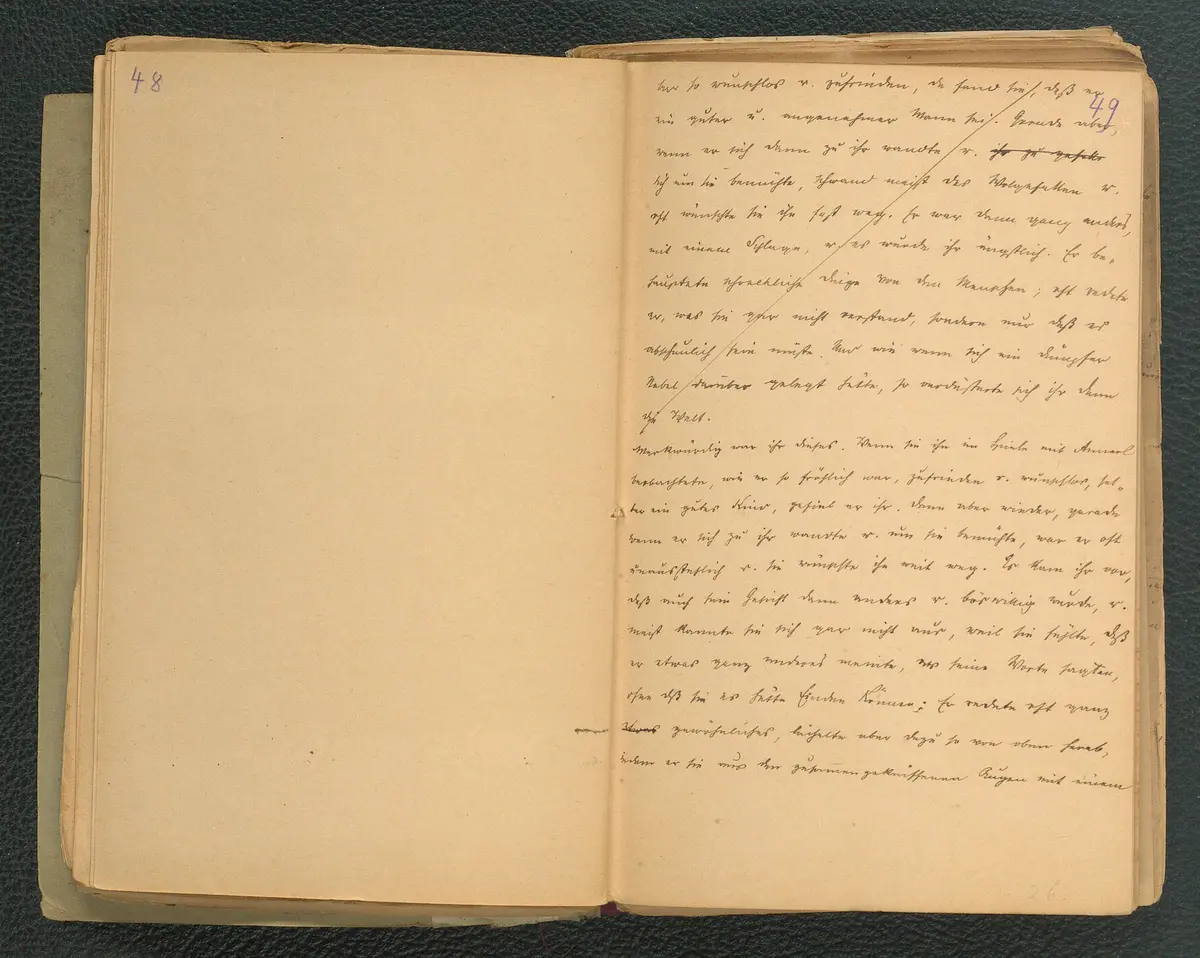 48
49
war so wunschlos u. zufrieden, da fand sie, daß er
ein guter u. angenehmer Mann sei. Gerade aber,
wenn er sich dann zu ihr wandte u. ihr zu
sich um sie bemühte, schwand meist das Wolgefallen u.
oft wünschte sie ihn fast weg. Er war dann ganz anders,
mit einem Schlage, u. es wurde ihr ängstlich. Er be-
hauptete schreckliche Dinge von den Menschen; oft redete
er, was sie gar nicht verstand, sondern nur daß es
abscheulich sein müsse. Und wie wenn sich ein dumpfer
Nebel darüber gelegt hätte, so verdüsterte sich ihr dann
die Welt.
Merkwürdig war ihr dieses. Wenn sie ihn im Spiele mit Annerl
beobachtete, wie er so fröhlich war, zufrieden u. wunschlos, sel-
ber ein gutes Kind, gefiel er ihr. Dann aber wieder, gerade
wenn er sich zu ihr wandte u. um sie bemühte, war er oft
unausstehlich u. sie wünschte ihn weit weg. Es kam ihr vor,
daß auch sein Gesicht dann anders u. böswillig wurde, u.
meist kannte sie sich gar nicht aus, weil sie fühlte, daß
er etwas ganz anderes meinte, als seine Worte sagten,
ohne daß sie es hätte finden können; Er redete oft ganz
etwas gewöhnliches, lächelte aber dazu so von oben herab,
indem er sie aus den zusammengekniffenen Augen mit einem
26